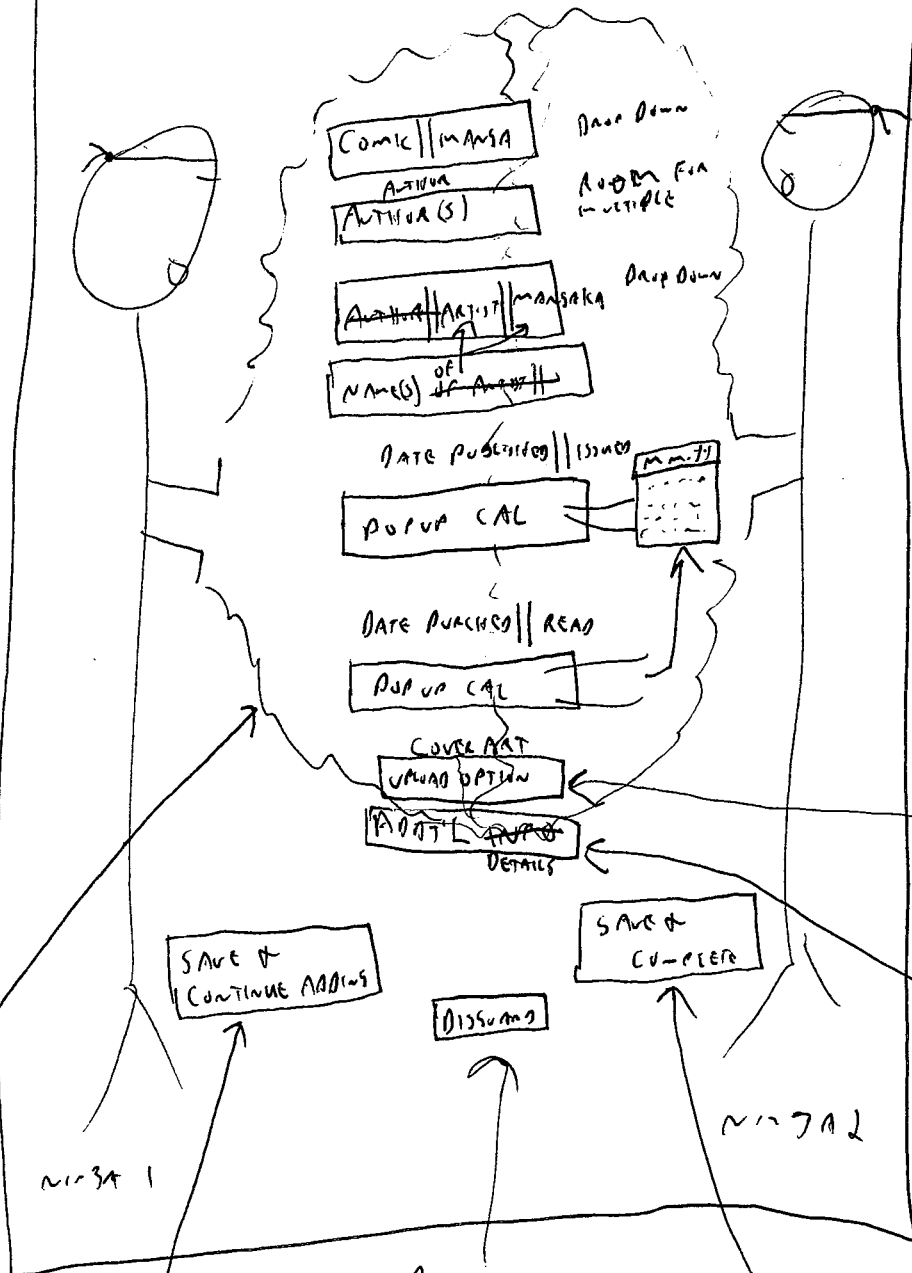 COMIC || MANGA
DROP DOWN
AUTHOR
AUTHOR(S)
ROOM FOR
MULTIPLE
AUTHOR || ARTIST || MANGAKA
DROP DOWN
NAME(S) OF
DATE PUBLISHED || ISSUED
MM.YY
POPUP CAL
DATE PURCHED || READ
POPUP CAL
COVER ART
UPLOAD OPTION
ADDT'L INFO
DETAILS
SAVE &
CONTINUE ADDING
SAVE &
COMPLETE
DISGUARD
NINJA 1
NINJA 2